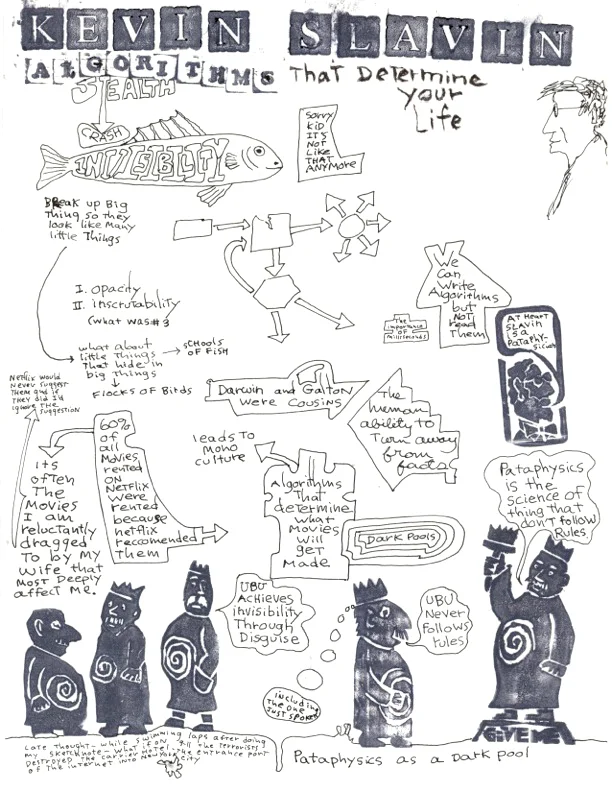 KEVIN SLAVIN
ALGORITHMS THAT DETERMINE
YOUR
Life
STEALTH
CRASH
INVISIBILITY
SORRY
KID
IT'S
NOT
LIKE
THAT
ANYMORE
BREAK UP BIG
Thing so They
look like Many
little Things
I. opacity
II. inscrutability
(what was #3
what about
little Things
That hide in
big Things
SCHOOLS
OF FISH
FLOCKS OF BIRDS
We
Can
Write
Algorithms
but
NOT
read
Them
The
importance
OF
milliseconds
AT HEART
SLAVIN
is a
PATAPHY-
SICIAN
Netflix would
Never suggest
Them and if
They did I'd
ignore The
suggestion
Darwin and Galton
were cousins
The
human
ability to
Turn away
from
facts
60%
of
all
Movies
rented
ON
NETFLIX
were
rented
because
netflix
recommended
Them
ITS
often
The
Movies
I am
reluctantly
dragged
To by my
wife that
MOST Deeply
affect Me.
leads To
MONO
culture
Algorithms
That
determine
what
movies
will
get
Made
DARK POOLS
Pataphysics
is the
science of
thing that
don't follow
Rules
UBU
ACHIEVES
invisibility
Through
Disguise
UBU
Never
follows
rules
including
The one
JUST SPOKEN
GIVE ME
Late Thought - while swimming laps after doing
my sketchnote - what if on 9/11 The Terrorists
Destroyed The Carrier Hotel, The entrance point
of the internet into New York City
Pataphysics as a Dark pool